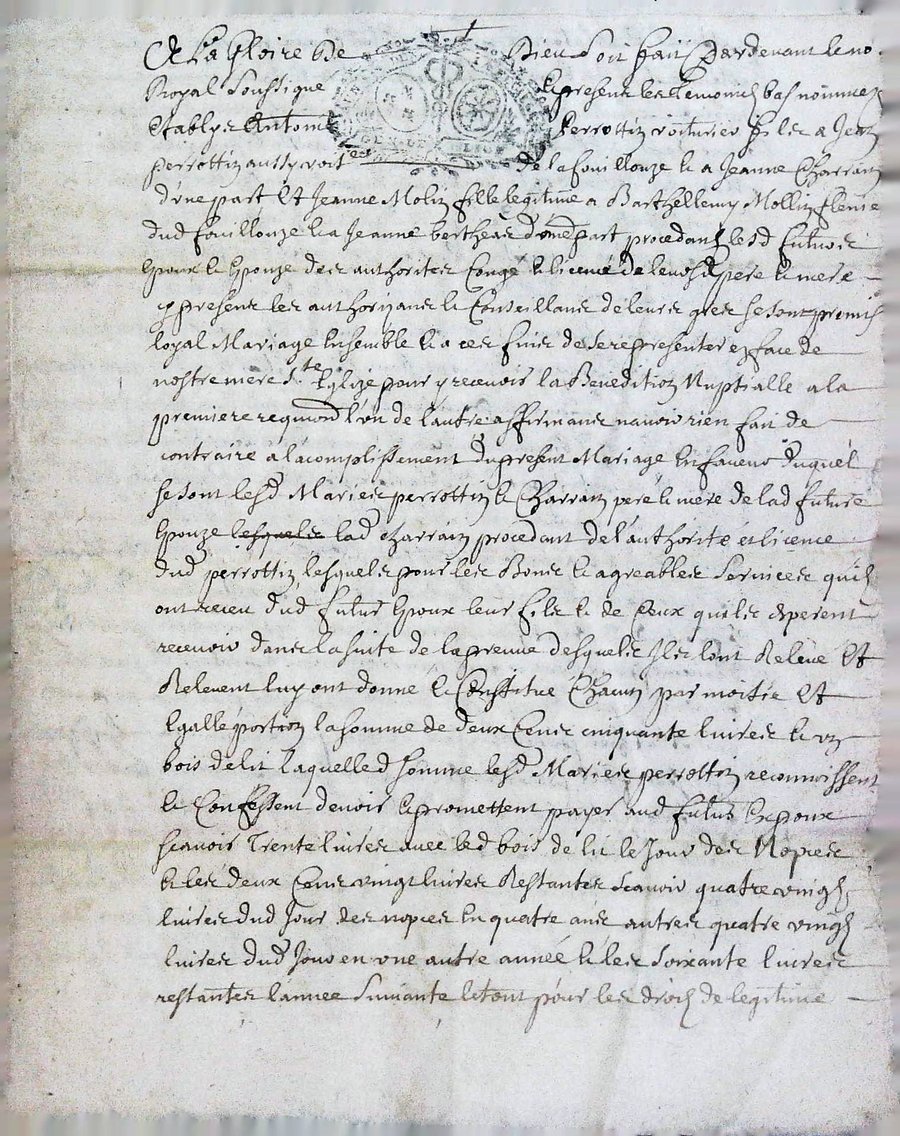 A La Gloire de Dieu soit fait Pardevant le no.
Royal soussigne et presens les temoings bas nommez
Establys Antoine Perrottin voiturier fils a Jean
perrottin aussy voit de la fouillouze et a Jeanne Charrain
d'vne part Et Jeanne Molin fille legitime a Barthellemy Mollin
dud fouillouze et a Jeanne d'autre part procedans lesd futurs
Epoux et Epouze des authorites Congé et licence de leursd pere et mere
cy presens les authorizans et Conseillans de leurs gres se sont promis
loyal Mariage Ensemble et a ces fins de se representer en face de
nostre mere Ste Eglize pour y recevoir la Benediction Nuptialle a la
premiere requi^on l'on de l'autre affirmans n'avoir rien fait de
contraire a l'acomplissement du present Mariage En faveur duquel
se sont lesd Maries perrottin et Charrain pere et mere de lad future
Epouze lesquels lad Charrain procedant de l'authorite et licence
dud perrottin, lesquels pour les Bons et agreables services quils
ont receu dud futur Epoux leur fils et de Ceux quils esperent
recevoir dans la suite de la preuve desquels Ils lont Relevé Et
Relevent luy ont donné et Constitué Chacun par moitie Et
Egalle portion la somme de deux Cens cinquante livres et vn
bois de lit Laquelle d somme lesd Maries perrottin reconnoissent
et Confessent devoir et promettent payer aud futur Expoux
scavoir Trente livres avec led bois de lit le Jour des Nopces
et les deux Cens vingt livres Restantes scavoir quatre vingts
livres dud Jour des nopces En quatre ans autres quatre vingts
livres dud Jour en vne autre année et les soixante livres
restantes l'annee suivante le tout pour les droits de legitime